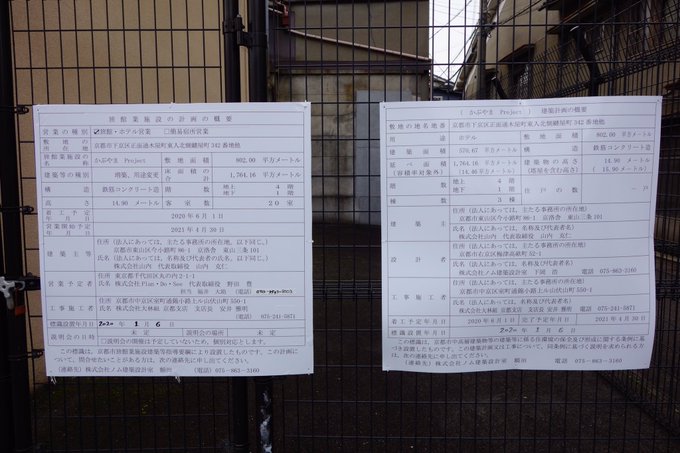 旅館業施設の計画の概要
営業の種別 ☑旅館・ホテル営業 □簡易宿所営業
敷地の所在地 京都市下京区正面通木屋町東入北側鍵屋町342番地他
施設の名称 かぶやま Project 敷地面積 802.00 平方メートル
建築等の種別 増築、用途変更 床面積の合計 1,764.16 平方メートル
構造 鉄筋コンクリート造 階数 地上 4 階 地下 1 階
高さ 14.90 メートル 客室数 20室
着工予定年月日 2020年6月1日
営業開始予定年月日 2021年4月30日
建築主等 住所（法人にあっては、主たる事務所の所在地。以下同じ。）
京都市東山区今小路町86-1 京洛舎 東山三条101
氏名（法人にあっては、名称及び代表者名。以下同じ。）
株式会社山内 代表取締役 山内 克仁
営業予定者 住所 東京都千代田区丸の内2-1-1
氏名 株式会社Plan・Do・See 代表取締役 野田 豊
担当 福井 大助（電話）
工事施工者 住所 京都市中京区室町通錦小路上ル山伏山町550-1
氏名 株式会社大林組 京都支店 支店長 安井 雅明
（電話）075-241-5871
標識設置年月日 2020年1月6日
説明会の日時 未定 説明会の場所 未定
□説明会の開催は予定していないため、個別対応とします。
この標識は、京都市旅館業施設建築等指導要綱により設置したものです。この計画について、問合せたいことがある方は、次の連絡先に申し出てください。
（連絡先）株式会社ノム建築設計室 額田 電話）075-863-3160
（ かぶやま Project ）建築計画の概要
敷地の地名地番 京都市下京区正面通木屋町東入北側鍵屋町342番地他
用途 ホテル 敷地面積 802.00 平方メートル
建築面積 570.67 平方メートル 構造 鉄筋コンクリート造
延べ面積（容積率対象外） 1,764.16 平方メートル（14.46 平方メートル） 建築物の高さ（塔屋を含む高さ） 14.90 メートル（ 15.90 メートル）
階数 地上 4 階 地下 1 階 住戸の数 ー戸
棟数 3 棟
建築主 住所（法人にあっては、主たる事務所の所在地）
京都市東山区今小路町86-1 京洛舎 東山三条101
氏名（法人にあっては、名称及び代表者名）
株式会社山内 代表取締役 山内 克仁
設計者 住所（法人にあっては、主たる事務所の所在地）
京都市右京区梅津高畝町52-1
氏名（法人にあっては、名称及び代表者名）
株式会社ノム建築設計室 下岡 浩 電話 075-863-3160
工事施工者 住所（法人にあっては、主たる事務所の所在地）
京都市中京区室町通錦小路上ル山伏山町550-1
氏名（法人にあっては、名称及び代表者名）
株式会社大林組 京都支店 支店長 安井 雅明 電話 075-241-5871
着工予定年月日 2020年6月1日 完了予定年月日 2021年4月30日
標識設置年月日 2020年1月6日
この標識は、京都市中高層建築物等の建築等に係る住環境の保全及び形成に関する条例に基づき設置したものです。この建築計画又は工事について、同条例に基づく説明を求められる方は、次の連絡先に申し出てください。
（連絡先）株式会社ノム建築設計室 額田 電話 075-863-3160